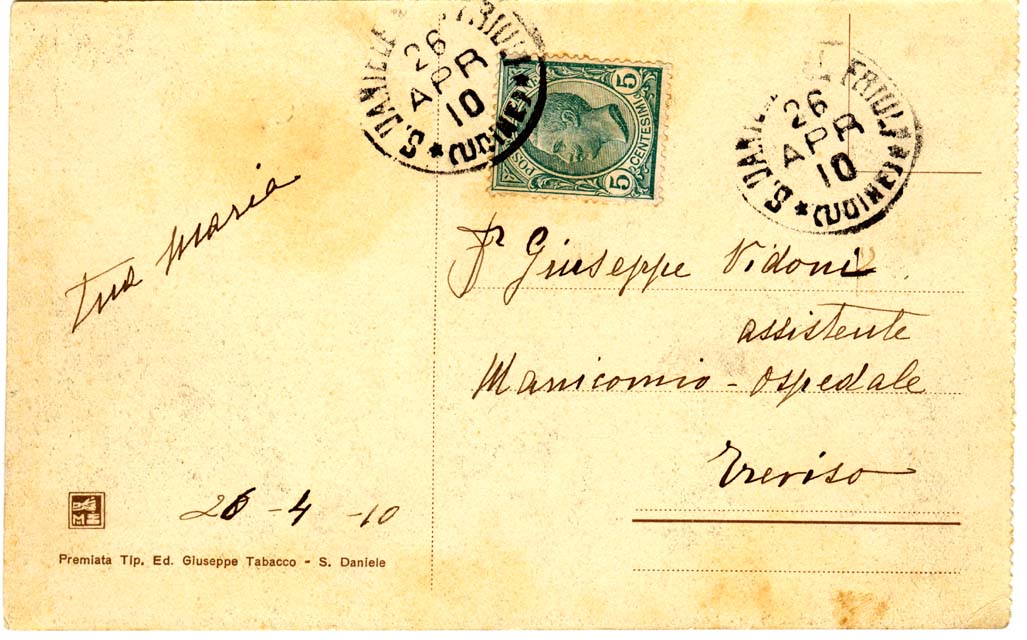 S. DANIELE FRIULI
26
APR
10
★ (UDINE) ★
POSTE
5 CENTESIMI 5
S. DANIELE FRIULI
26
APR
10
★ (UDINE) ★
tua Maria
Giuseppe Vidoni
assistente
Manicomio - Ospedale
Treviso
26 - 4 - 10
Premiata Tip. Ed. Giuseppe Tabacco - S. Daniele